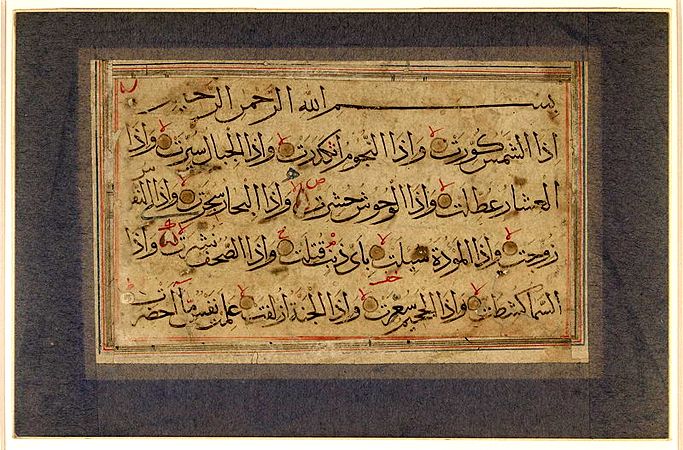 بسم الله الرحمن الرحيم
اذا الشمس كورت واذا النجوم انكدرت واذا الجبال سيرت واذا
العشار عطلت واذا الوحوش حشرت واذا البحار سجرت واذا النفوس
زوجت واذا الموءدة سئلت بأى ذنب قتلت واذا الصحف نشرت واذا
السماء كشطت واذا الجحيم سعرت واذا الجنة أزلفت علمت نفس ما أحضرت